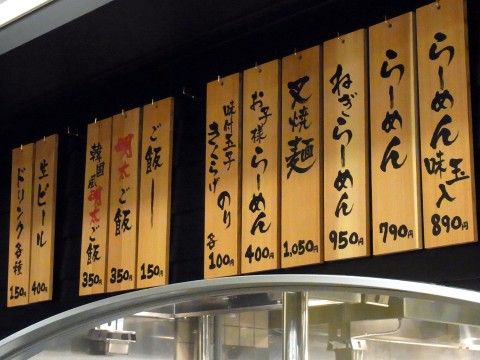 らーめん味玉入 890円
らーめん 790円
ねぎらーめん 950円
叉焼麺 1,050円
お子様らーめん 400円
味付玉子
きくらげ のり 各100円
ご飯 150円
明太ご飯 350円
韓国風明太ご飯 350円
生ビール 400円
ドリンク各種 150円